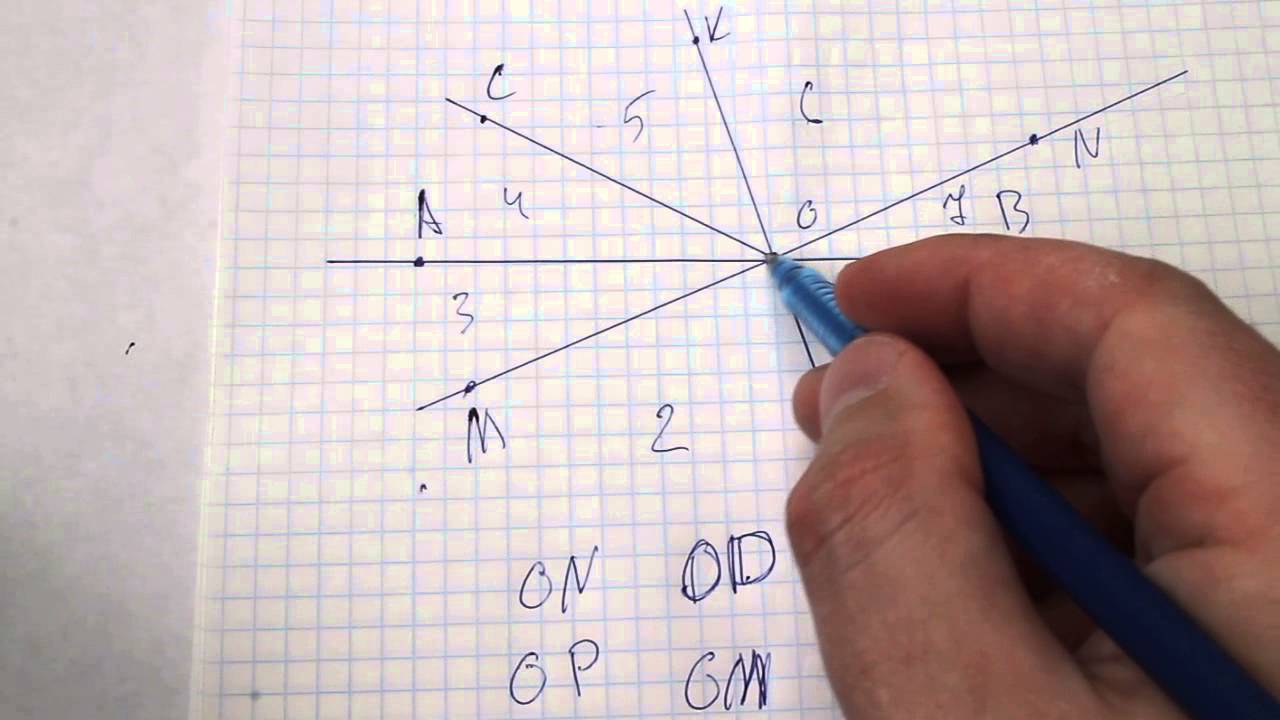 K
C
5
6
N
A
4
O
7
B
3
M
2
ON OD
OP OM